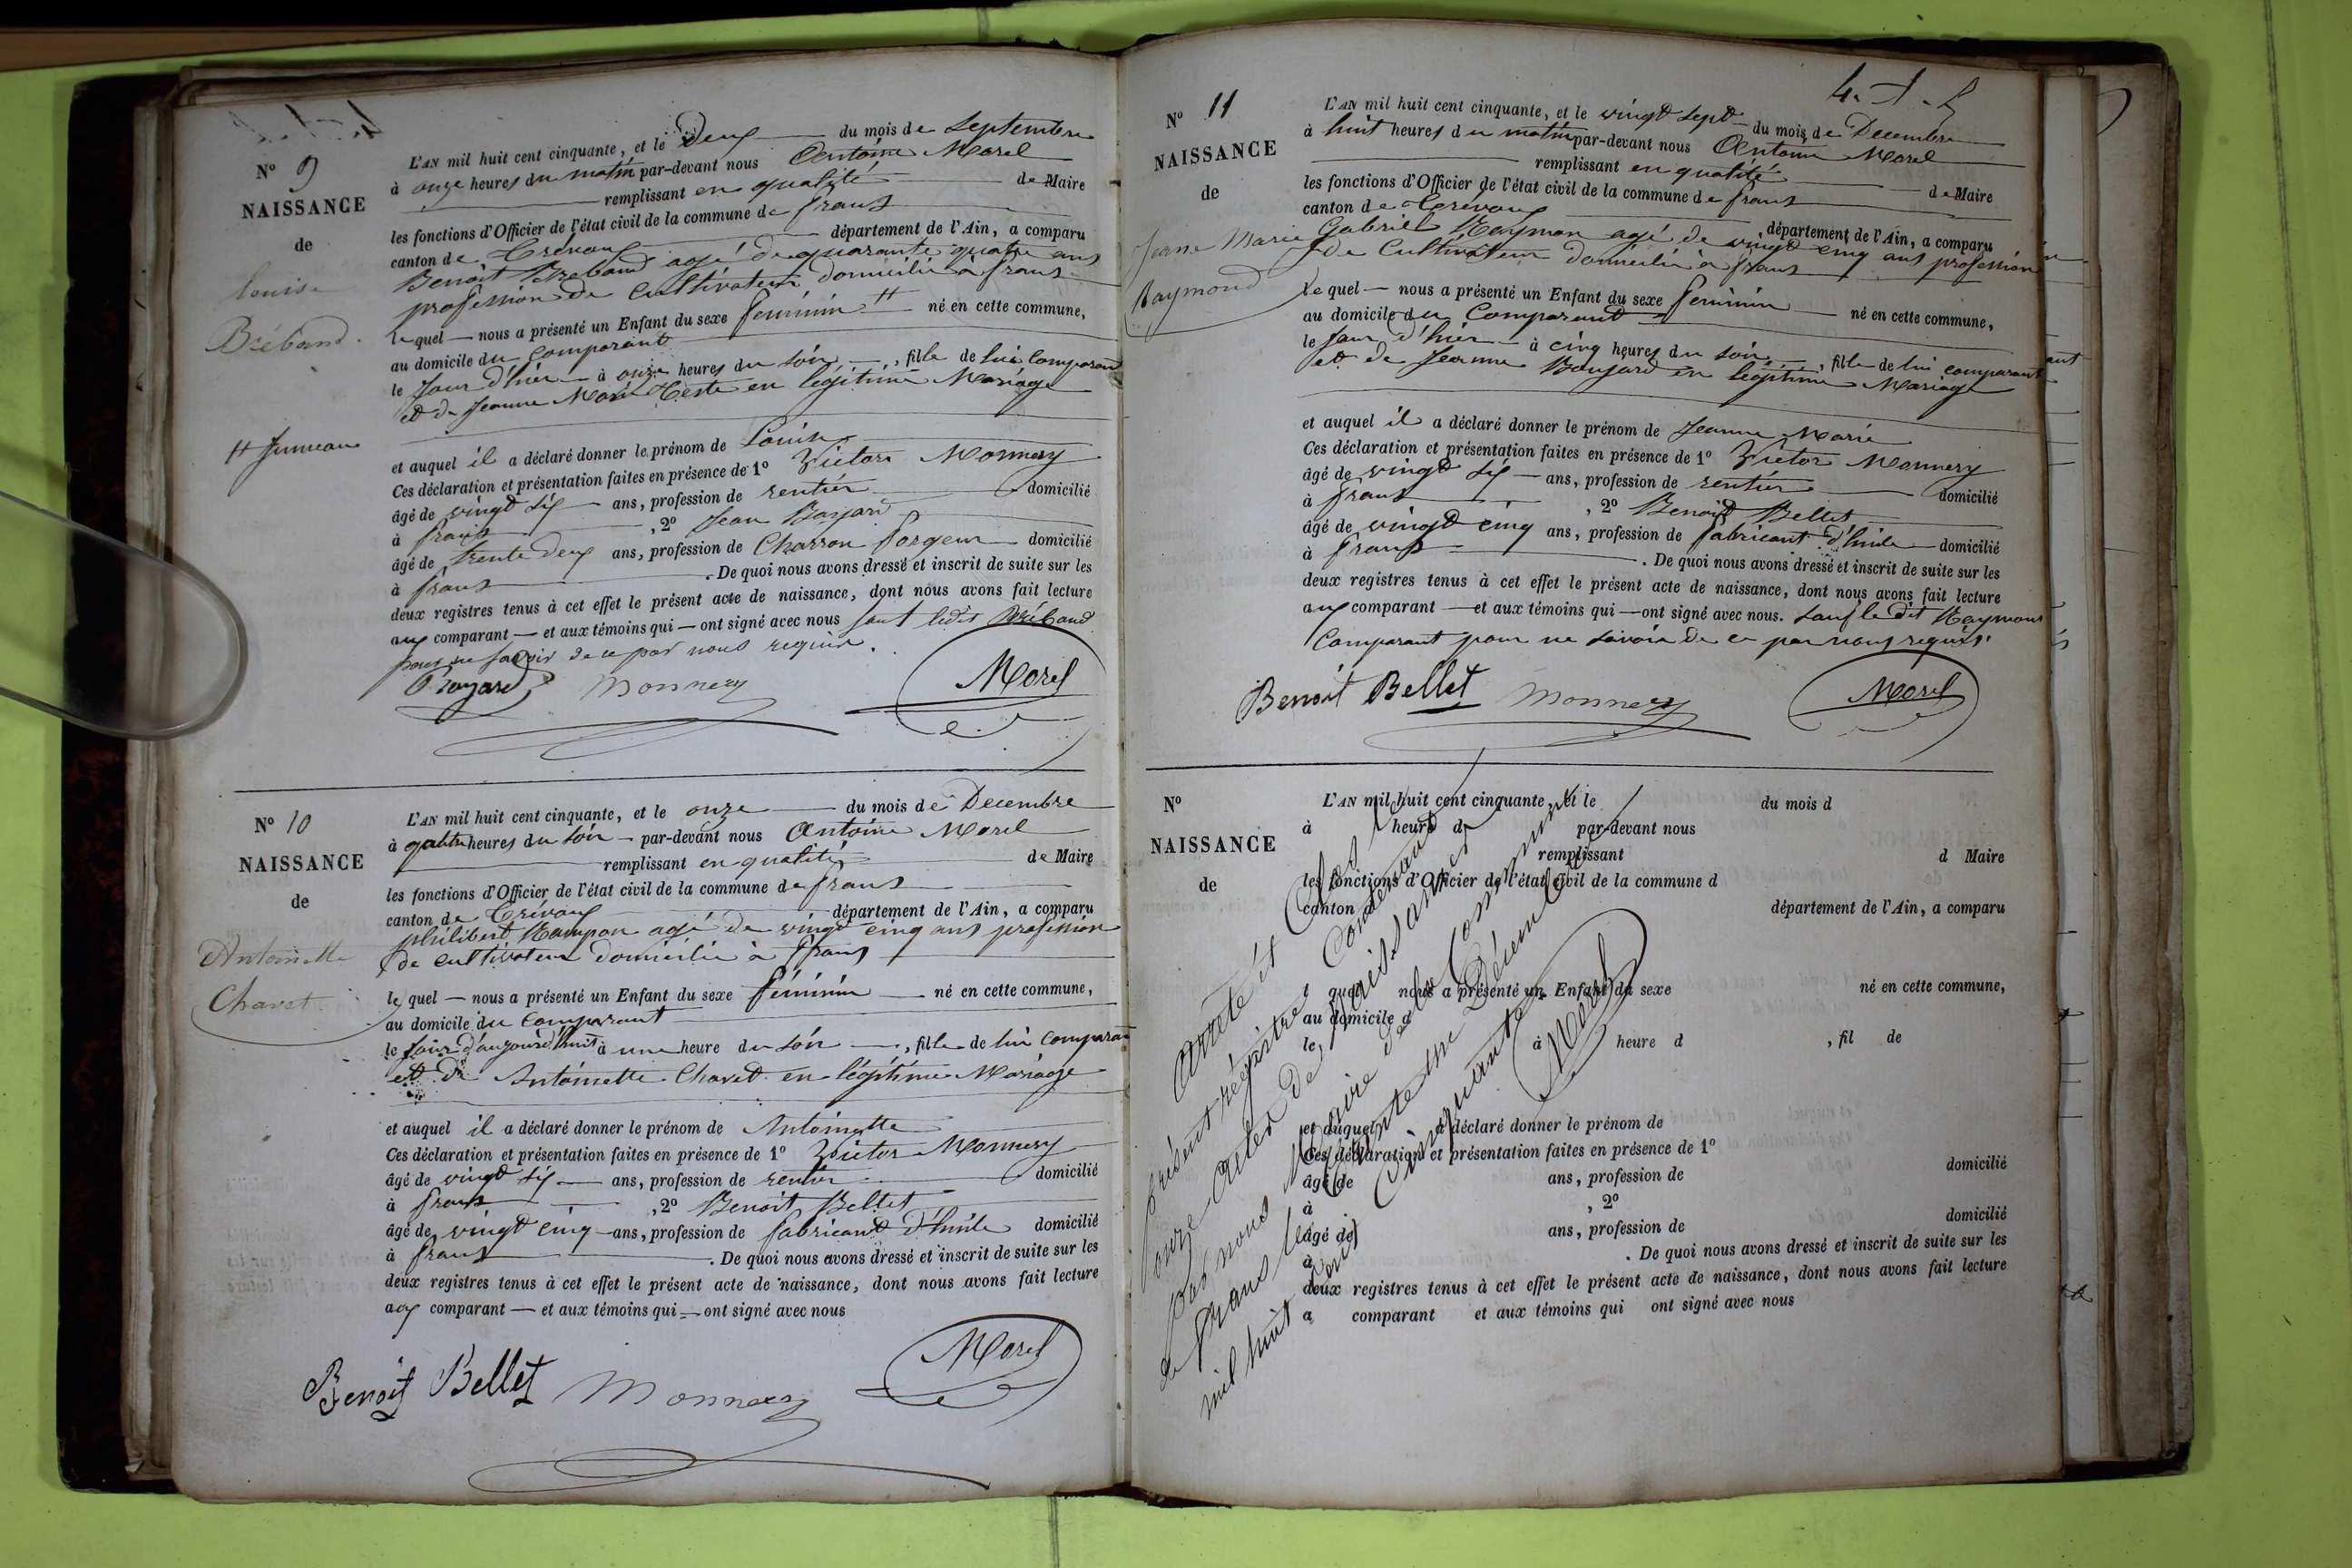 N° 9
NAISSANCE
de
Louise
Bréband.
H Jumeau
L'AN mil huit cent cinquante, et le Deux du mois de Septembre
à onze heures du matin par-devant nous Antoine Morel
remplissant en qualité de Maire
les fonctions d'Officier de l'état civil de la commune de frans
canton de Trévoux département de l'Ain, a comparu
Benoit Breband agé de quarante quatre ans
profession de cultivateur domicilié a frans
le quel — nous a présenté un Enfant du sexe féminin H né en cette commune,
au domicile du Comparant
le Jour d'hier à onze heures du soir, fille de lui Comparant
et de Jeanne Marie Teste en légitime Mariage
et auquel il a déclaré donner le prénom de Louise
Ces déclaration et présentation faites en présence de 1° Victor Monnery
âgé de vingt six ans, profession de rentier domicilié
à frans, 2° Jean
âgé de trente deux ans, profession de Charron forgeur domicilié
à frans. De quoi nous avons dressé et inscrit de suite sur les
deux registres tenus à cet effet le présent acte de naissance, dont nous avons fait lecture
aux comparant — et aux témoins qui — ont signé avec nous ledit Bréband
pour ne savoir de ce par nous requis.
Monnery Morel
N° 10
NAISSANCE
de
Antoinette
Chavet
L'AN mil huit cent cinquante, et le onze du mois de Decembre
à quatre heures du soir par-devant nous Antoine Morel
remplissant en qualité de Maire
les fonctions d'Officier de l'état civil de la commune de frans
canton de Trévoux département de l'Ain, a comparu
philibert agé de vingt cinq ans profession
de cultivateur domicilié à frans
le quel — nous a présenté un Enfant du sexe féminin né en cette commune,
au domicile du Comparant
le jour d'aujourd'huit à une heure du soir, fille de lui Comparant
et de Antoinette Chavet en légitime Mariage
et auquel il a déclaré donner le prénom de Antoinette
Ces déclaration et présentation faites en présence de 1° Victor Monnery
âgé de vingt six ans, profession de rentier domicilié
à frans, 2° Benoit Bellet
âgé de vingt cinq ans, profession de fabricant d'huile domicilié
à frans. De quoi nous avons dressé et inscrit de suite sur les
deux registres tenus à cet effet le présent acte de naissance, dont nous avons fait lecture
aux comparant — et aux témoins qui — ont signé avec nous
Benoit Bellet Monnery Morel
N° 11
NAISSANCE
de
Jeane Marie
Raymond
L'AN mil huit cent cinquante, et le vingt sept du mois de Decembre
à huit heures du matin par-devant nous Antoine Morel
remplissant en qualité de Maire
les fonctions d'Officier de l'état civil de la commune de frans
canton de Trévoux département de l'Ain, a comparu
Gabriel Raymon agé de vingt cinq ans profession
de Cultivateur domicilié à frans
le quel — nous a présenté un Enfant du sexe feminin né en cette commune,
au domicile du Comparant
le Jour d'hier à cinq heures du soir, fille de lui comparant
et de Jeanne Boujard en légitime Mariage
et auquel il a déclaré donner le prénom de Jeanne Marie
Ces déclaration et présentation faites en présence de 1° Victor Monnery
âgé de vingt six — ans, profession de rentier domicilié
à frans, 2° Benoit Bellet
âgé de vingt cinq ans, profession de fabricant d'huile domicilié
à frans. De quoi nous avons dressé et inscrit de suite sur les
deux registres tenus à cet effet le présent acte de naissance, dont nous avons fait lecture
aux comparant — et aux témoins qui — ont signé avec nous. sauf le dit Raymond
Comparant pour ne savoir de ce par nous requis.
Benoit Bellet Monnery Morel
N°
NAISSANCE
de
L'AN mil huit cent cinquante, et le du mois d
à heure d par-devant nous
remplissant d Maire
les fonctions d'Officier de l'état civil de la commune d
canton département de l'Ain, a comparu
l quel nous a présenté un Enfant du sexe né en cette commune,
au domicile d
le à heure d , fil de
et auquel a déclaré donner le prénom de
Ces déclaration et présentation faites en présence de 1°
âgé de ans, profession de domicilié
à , 2°
âgé de ans, profession de domicilié
à . De quoi nous avons dressé et inscrit de suite sur les
deux registres tenus à cet effet le présent acte de naissance, dont nous avons fait lecture
a comparant et aux témoins qui ont signé avec nous
Arrêté et Clos le
présent régistre Contenant
onze Actes de naissances
par nous Maire de la Commune
de frans le trente un Décembre
mil huit cent Cinquante
Morel